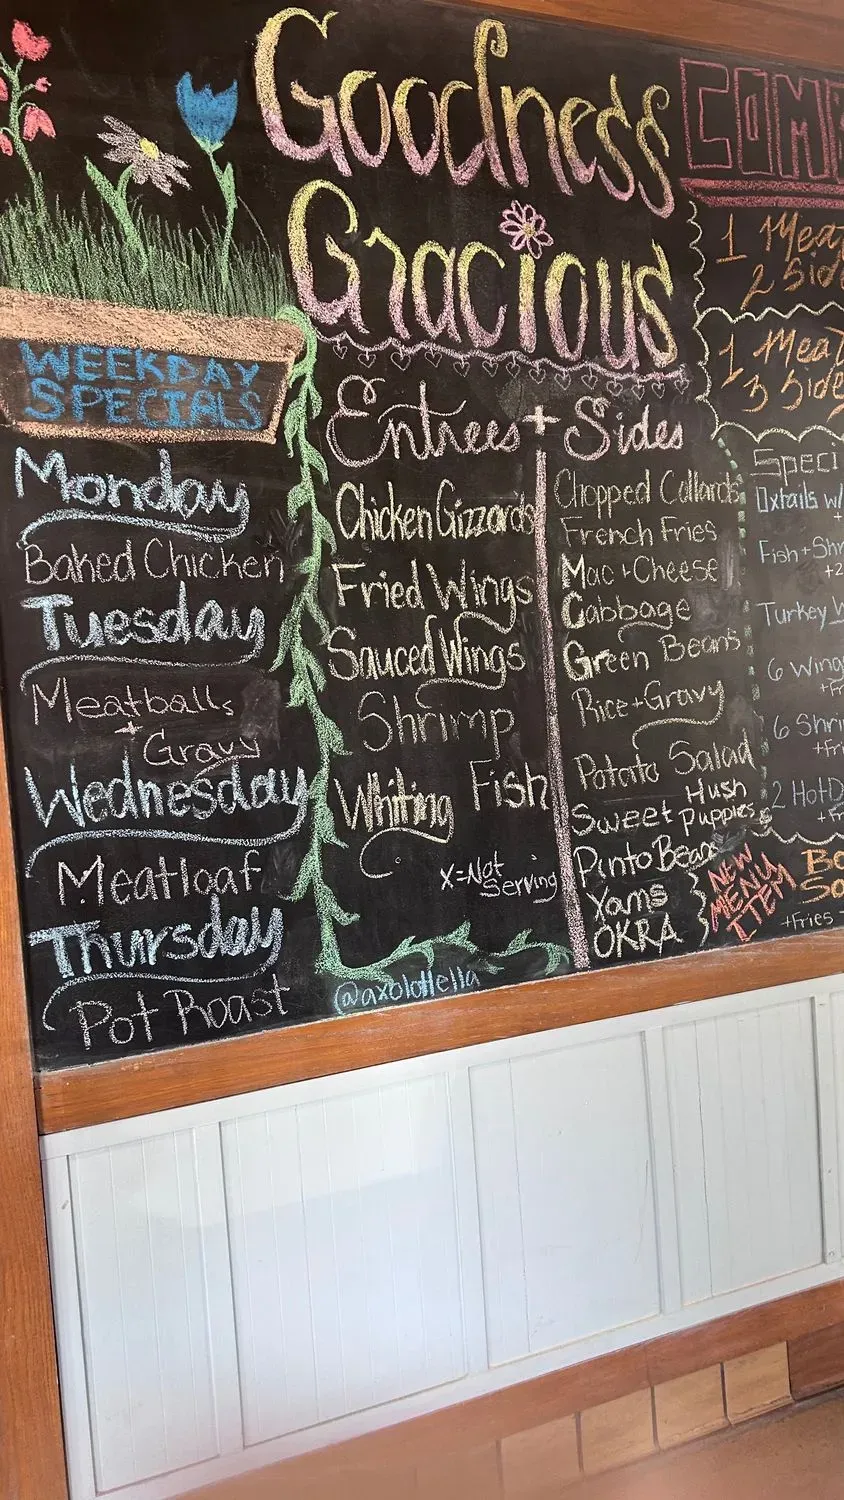 Goodness
Gracious
WEEKDAY
SPECIALS
Monday
Baked Chicken
Tuesday
Meatballs
+
Gravy
Wednesday
Meatloaf
Thursday
Pot Roast
Entrees + Sides
Chicken Gizzards
Fried Wings
Sauced Wings
Shrimp
Whiting Fish
X=Not
Serving
@axolotlella
Chopped Collards
French Fries
Mac + Cheese
Cabbage
Green Beans
Rice + Gravy
Potato Salad
Sweet Hush
Puppies
Pinto Beans
Yams
OKRA
NEW
MENU
ITEM
COMB
1 Meat
2 Side
1 Meat
3 Side
Speci
Oxtails w/
+
Fish + Shr
+2
Turkey W
6 Wing
+Fr
6 Shri
+Fri
2 Hot D
+Fr
Bo
So
+Fries